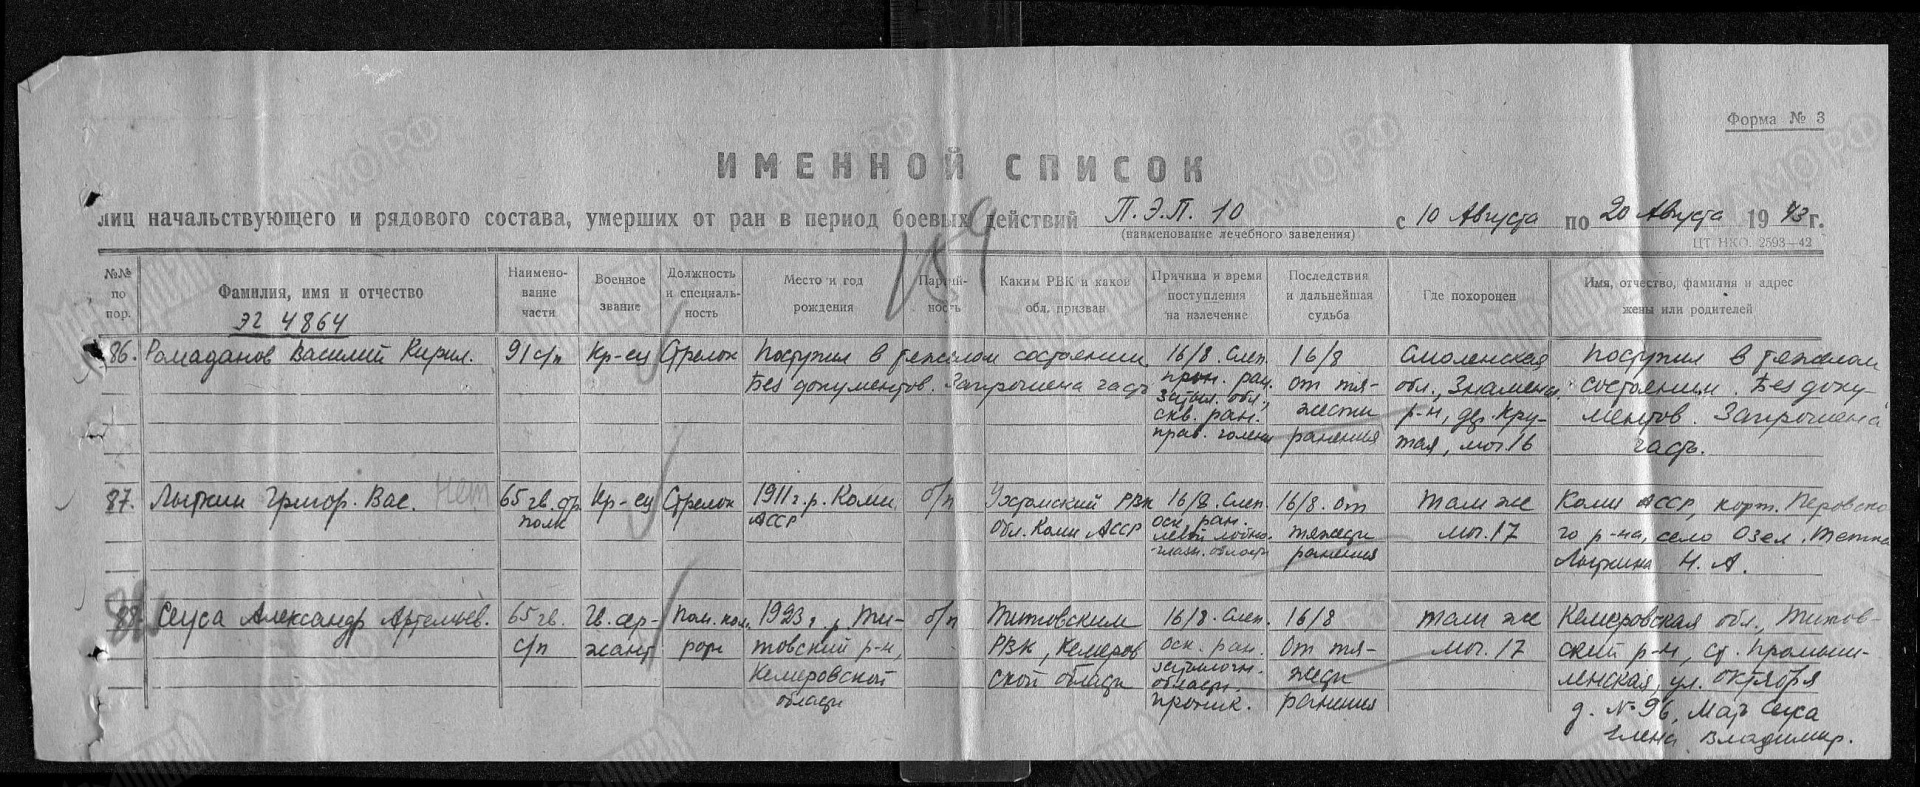 Форма № 3
ИМЕННОЙ СПИСОК
лиц начальствующего и рядового состава, умерших от ран в период боевых действий П.Э.П. 10 с 10 Августа по 20 Августа 1943 г.
(наименование лечебного заведения)
ЦТ НКО. 2593—42
№№ по пор.
Фамилия, имя и отчество
ЭГ 4864
Наименование части
Военное звание
Должность и специальность
Место и год рождения
Партийность
Каким РВК и какой обл. призван
Причина и время поступления на излечение
Последствия и дальнейшая судьба
Где похоронен
Имя, отчество, фамилия и адрес жены или родителей
159
86. Ромаданов Василий Кирил. 91 с/п Кр-ец Стрелок Поступил в тяжелом состоянии 16/8. Слеп. 16/8 Смоленская Поступил в тяжелом
Без документов. Запрошена часть ран. от тя- обл., Знаменс. состоянии. Без доку-
затыл. обл., скв. ран. жести р-н, др. Кру- ментов. Запрошена
прав. голени ранения тая, мог. 16 часть.
87. Лыткин Григор. Вас. Нет 65 гв. стр. Кр-ец Стрелок 1911 г.р. Коми б/п Ухтомский РВК 16/8. Слеп. 16/8. От Там же Коми АССР, Корт.
полк АССР Обл. Коми АССР оск. ран. тяжести мог. 17 го р-на, село Озел. Тетка
левой лобно-
глазн. области ранения Лыткина Н. А.
88. Сеуса Александр Артемьев. 65 гв. Гв. сер- Пом. ком. 1923 г., Ти- б/п Титовским 16/8. Слеп. 16/8 Там же Кемеровская обл., Титов-
с/п жант рот товский р-н, РВК, Кемеров оск. ран. От тя- мог. 17 ский р-н, ст. Промыш-
Кемеровской ской области затылочн. области. жести ленская, ул. Октября
области проник. ранения д. № 96, Мать Сеуса
Елена Владимир.